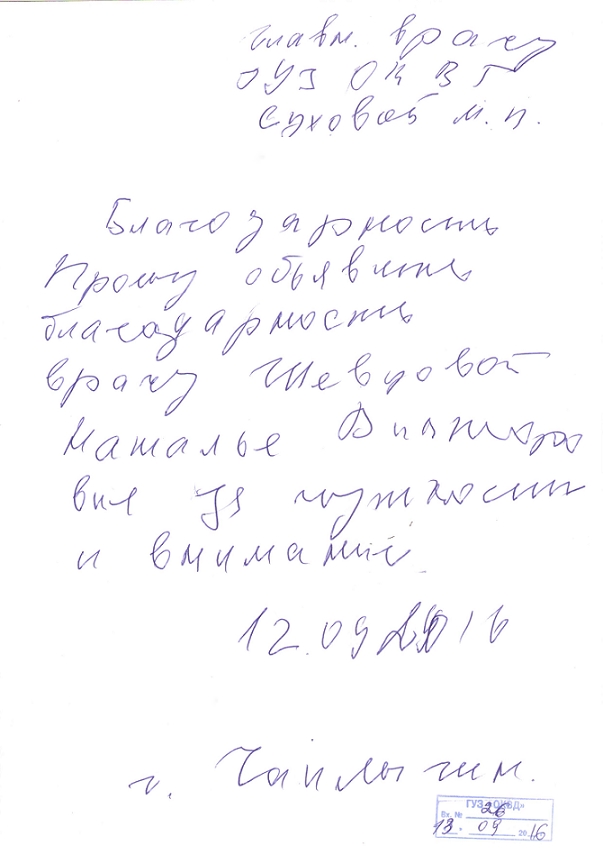 Главн. врачу
ОУЗ ОКВГ
Суховой М.П.
Благодарность
Прошу объявить
благодарность
врачу Шевцовой
Наталье Викторо
вне за чуткость
и внимание
12.09.2016
г. Чаплыгин.
ГУЗ «ОКВД»
Вх. № 26
13 09 2016